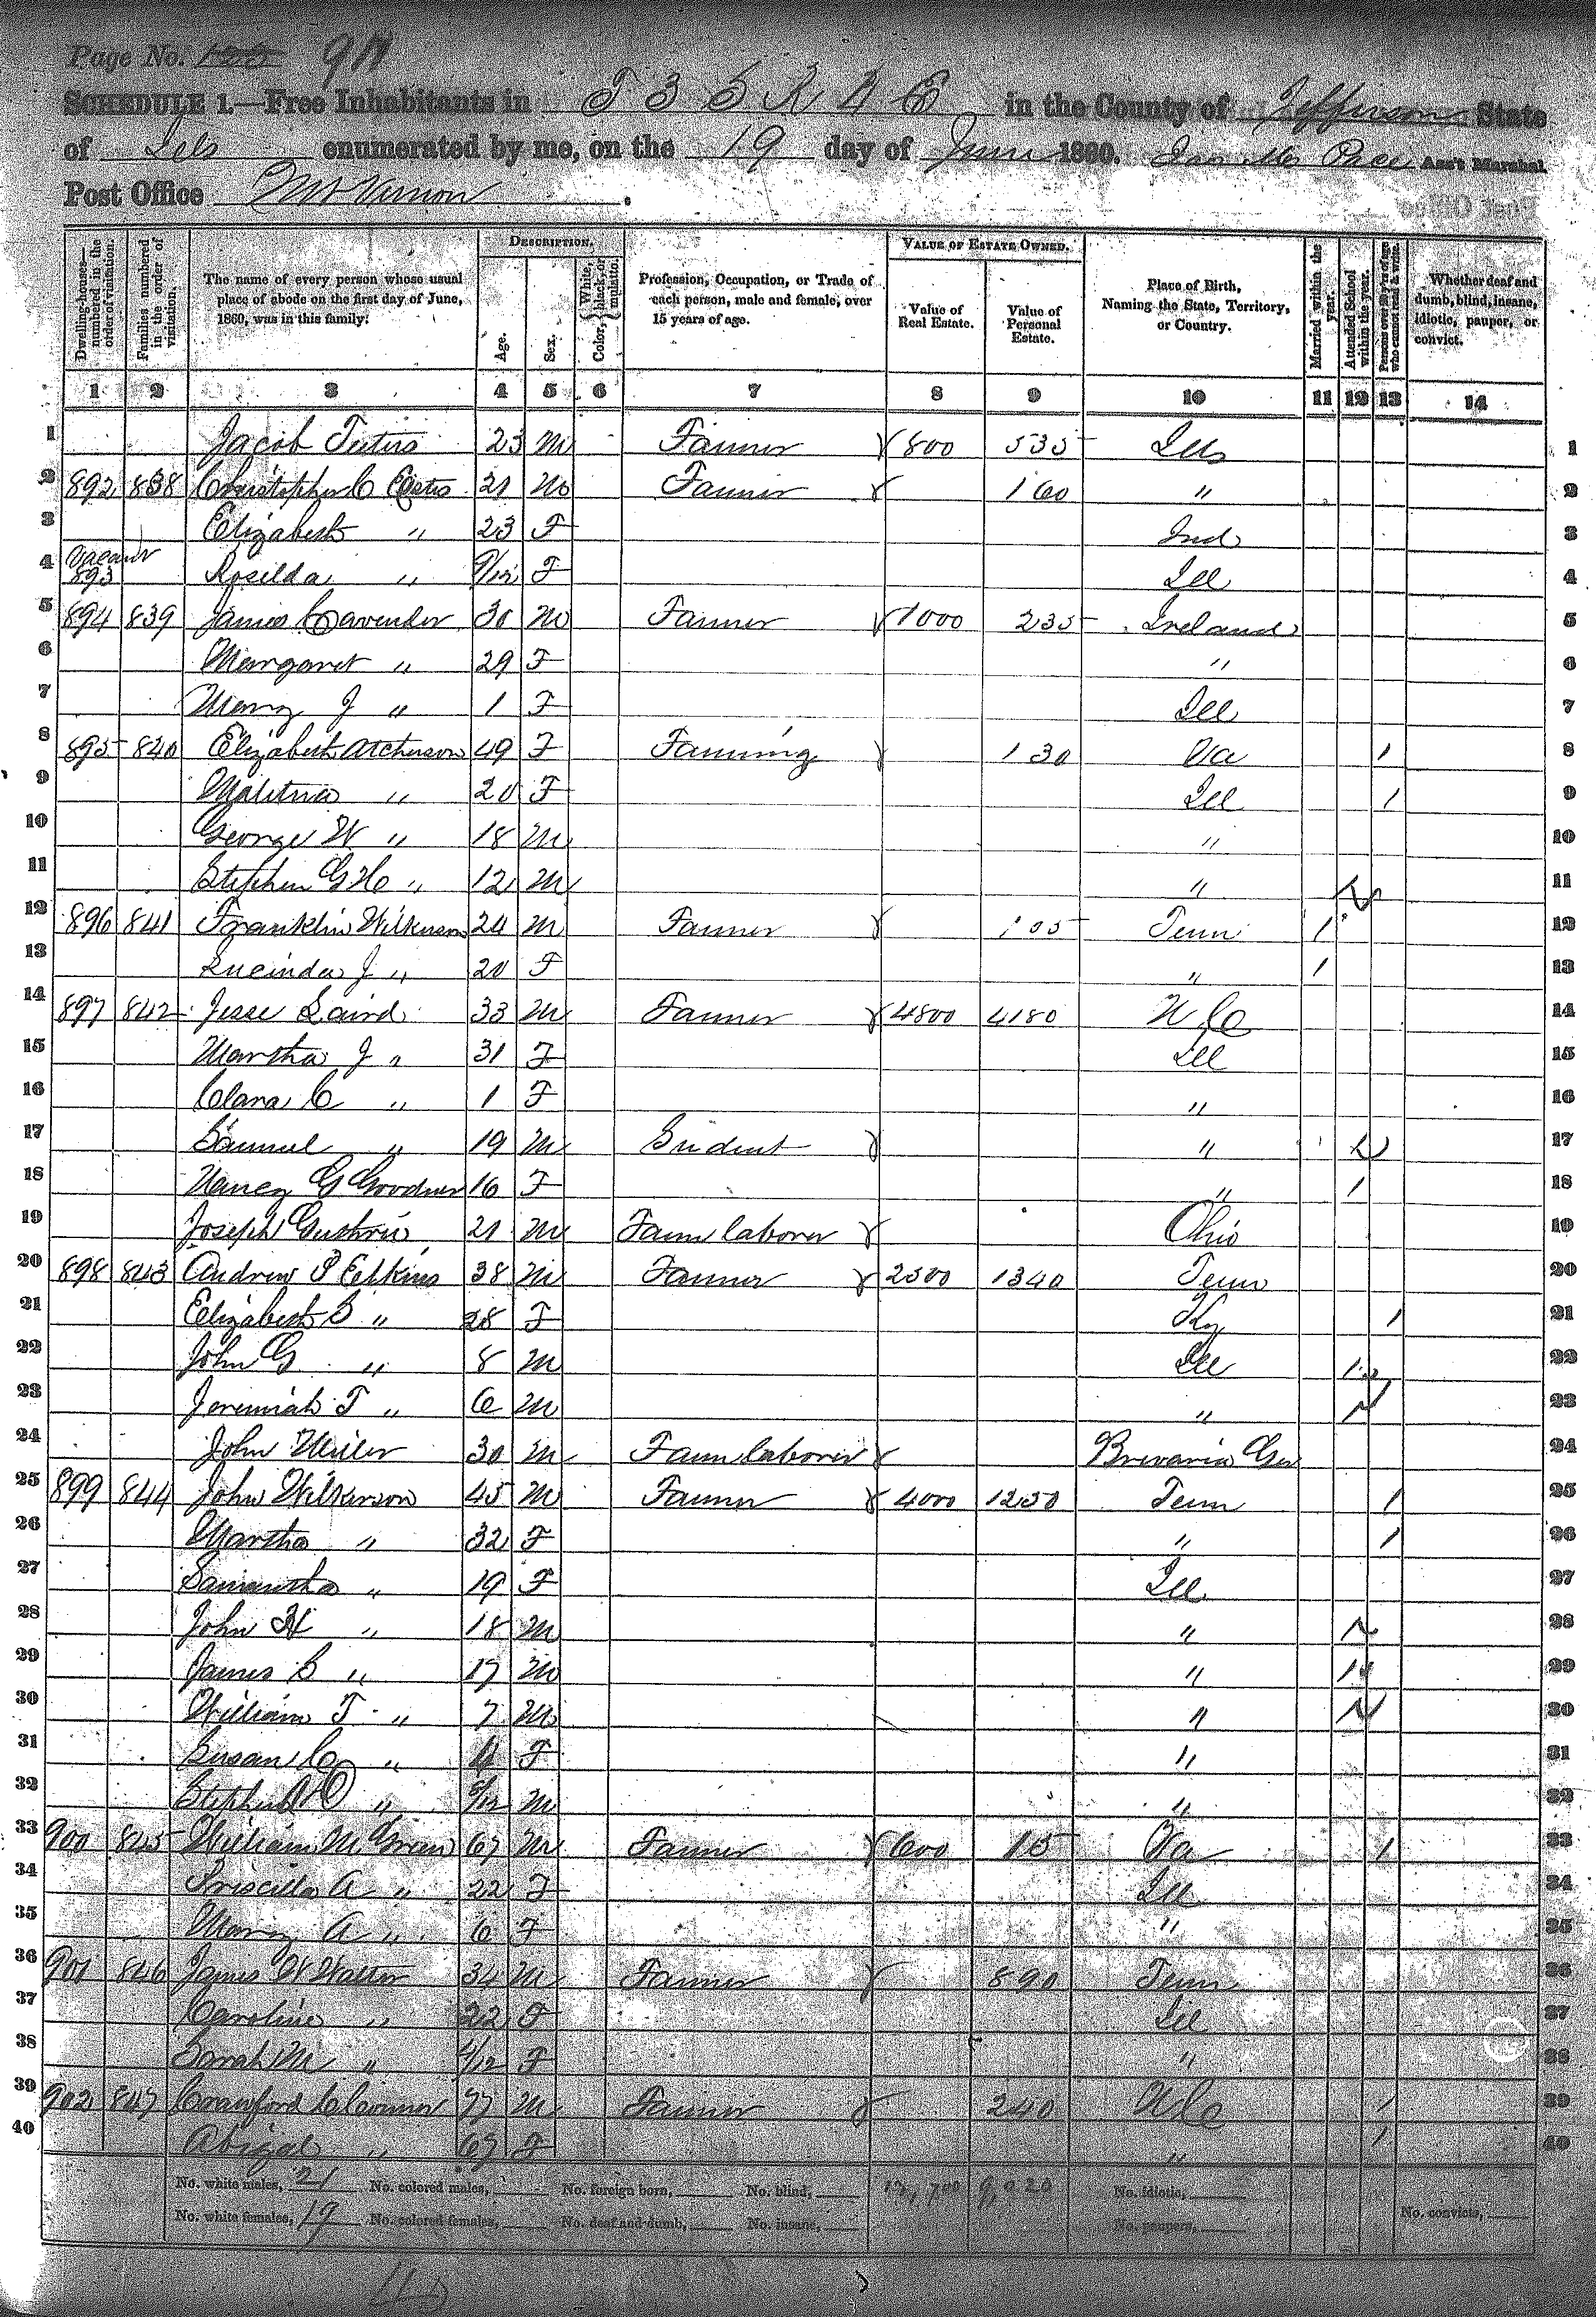 Page No. 90
SCHEDULE 1.—Free Inhabitants in T 3 S R 3 E in the County of Jefferson State
of Ills enumerated by me, on the 19 day of June 1860. Pace Ass't Marshal.
Post Office Mt Vernon.
Dwelling-houses—numbered in the order of visitation.
Families numbered in the order of visitation.
The name of every person whose usual place of abode on the first day of June, 1860, was in this family:
DESCRIPTION.
Age.
Sex.
Color, { White, black, or mulatto.
Profession, Occupation, or Trade of each person, male and female, over 15 years of age.
VALUE OF ESTATE OWNED.
Value of Real Estate.
Value of Personal Estate.
Place of Birth, Naming the State, Territory, or Country.
Married within the year.
Attended School within the year.
Persons over 20 y'rs of age who cannot read & write.
Whether deaf and dumb, blind, insane, idiotic, pauper, or convict.
1 2 3 4 5 6 7 8 9 10 11 12 13 14
1 Jacob Teters 23 M Farmer 800 535 Ills 1
2 892 838 Christopher C Estes 21 M Farmer 160 " 2
3 Elizabeth " 23 F Ind 3
4 Vacant 893 Rosilda " 9/12 F Ill 4
5 894 839 James Cavender 30 M Farmer 1000 235 Ireland 5
6 Margaret " 29 F " 6
7 Mary J " 1 F Ill 7
8 895 840 Elizabeth Atcherson 49 F Farming 130 Va 1 8
9 " 20 F Ill 1 9
10 George W " 18 M " 10
11 Stephen G H " 12 M " 11
12 896 841 Franklin Wilkerson 24 M Farmer 105 Tenn 1 12
13 Lucinda J " 20 F " 1 13
14 897 842 Jesse Laird 33 M Farmer 4800 4180 N C 14
15 Martha J " 31 F Ill 15
16 Clara C " 1 F " 16
17 Samuel " 19 M Student " 17
18 Nancy G Goodner 16 F " 1 18
19 Joseph Guthrie 21 M Farm laborer Ohio 19
20 898 843 Andrew P Elkins 38 M Farmer 2500 1340 Tenn 20
21 Elizabeth S " 28 F Ky 1 21
22 John G " 8 M Ill 1 22
23 Jeremiah T " 6 M " 23
24 John Miller 30 M Farm laborer Brevaria Ger 24
25 899 844 John Wilkerson 45 M Farmer 4000 1250 Tenn 1 25
26 Martha " 32 F " 1 26
27 Samantha " 19 F Ill 27
28 John H " 18 M " 28
29 James S " 17 M " 1 29
30 William T " 7 M " 30
31 Susan C " F " 31
32 Stephen " 5/12 M " 32
33 900 845 William M Green 67 M Farmer 600 15 Va 1 33
34 Priscilla A " 22 F Ill 34
35 Mary A " 6 F " 35
36 901 846 James W Walter 34 M Farmer 890 Tenn 36
37 Caroline " 22 F Ill 37
38 Sarah M " 4/12 F " 38
39 902 847 Crawford C Connor 77 M Farmer 240 N C 1 39
40 Abigal " 67 F " 1 40
No. white males, 21 No. colored males, No. foreign born, No. blind, No. idiotic,
No. white females, 19 No. colored females, No. deaf and dumb, No. insane, No. paupers, No. convicts,